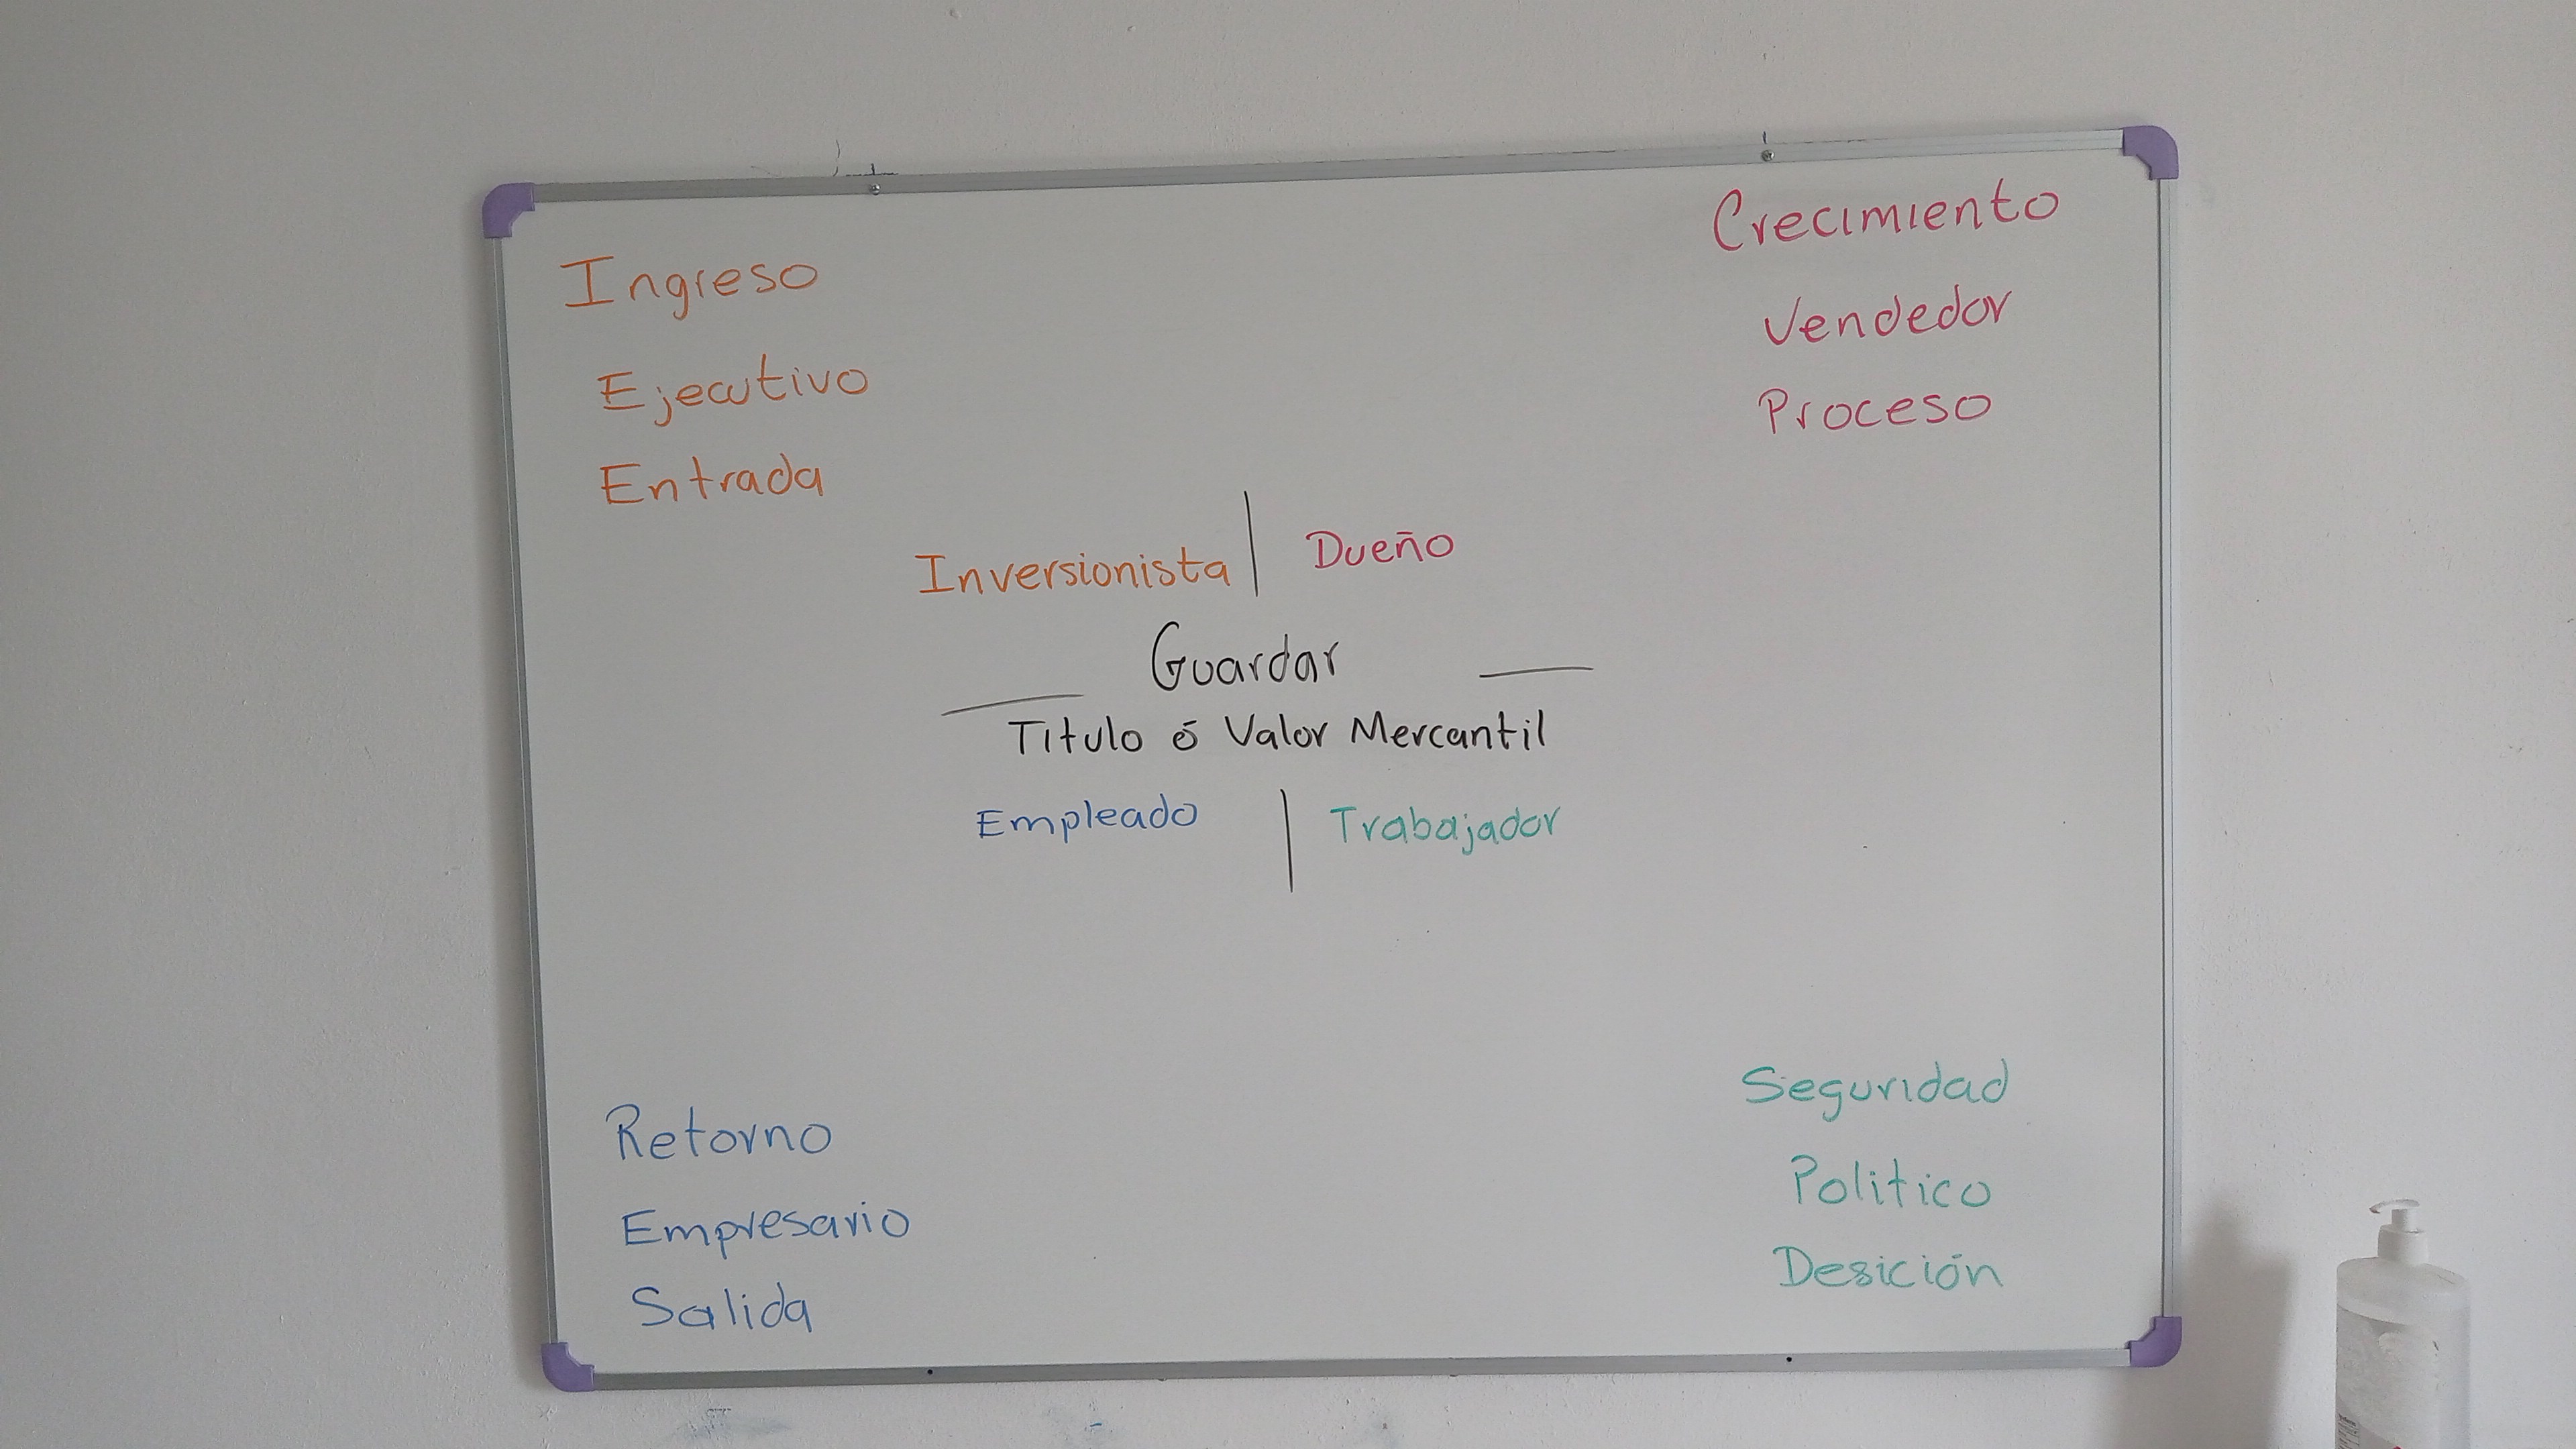 Ingreso
Ejecutivo
Entrada
Crecimiento
Vendedor
Proceso
Inversionista | Dueño
Guardar
Titulo ó Valor Mercantil
Empleado | Trabajador
Retorno
Empresario
Salida
Seguridad
Politico
Desición